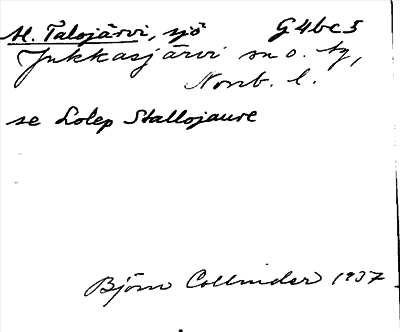 St. Talojärvi, sjö G4bc5
Jukkasjärvi sn o. tg,
Norrb. l.
se Lolep Stallojaure
Björn Collinder 1937